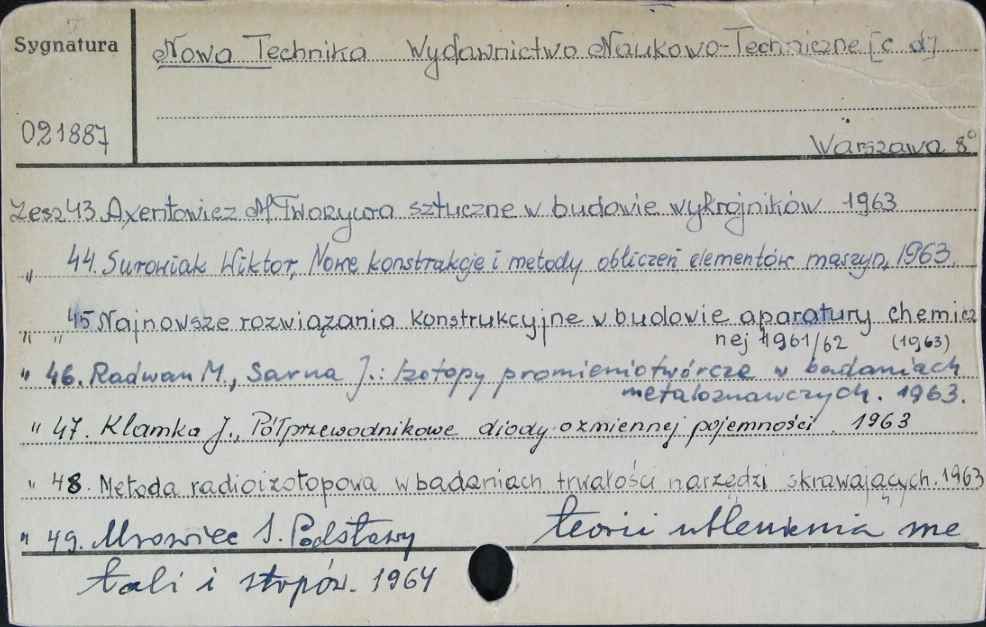 Sygnatura
Nowa Technika Wydawnictwo Naukowo-Techniczne [c d]
021887
Warszawa 8°
Zesz 43. Axentowicz M Tworzywa sztuczne w budowie wykrojników 1963
" 44. Surowiak Wiktor, Nowe konstrukcje i metody obliczeń elementów maszyn, 1963.
" " 45 Najnowsze rozwiązania konstrukcyjne w budowie aparatury chemicz
nej 1961/62 (1963)
" 46. Radwan M., Sarna J.: Izotopy promieniotwórcze w badaniach
metaloznawczych. 1963.
" 47. Klamka J., Półprzewodnikowe diody o zmiennej pojemności. 1963
" 48. Metoda radioizotopowa w badaniach trwałości narzędzi skrawających. 1963
" 49. Mrowiec S. Podstawy teorii utleniania me
tali i stopów. 1964